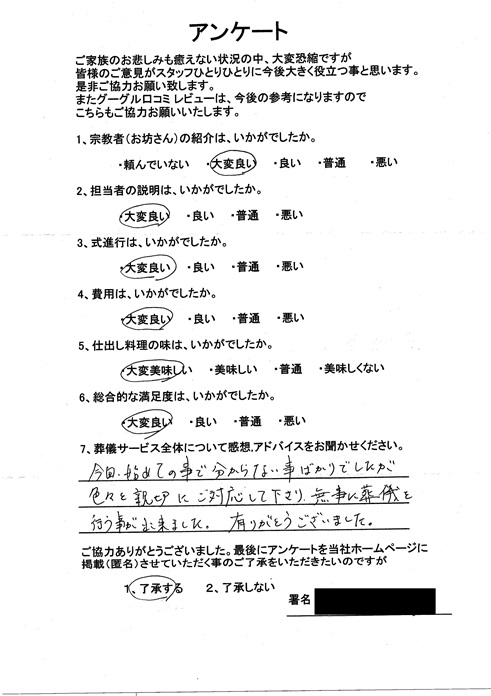 アンケート
ご家族のお悲しみも癒えない状況の中、大変恐縮ですが
皆様のご意見がスタッフひとりひとりに今後大きく役立つ事と思います。
是非ご協力お願い致します。
またグーグル口コミ レビューは、今後の参考になりますので
こちらもご協力お願いいたします。
1、宗教者(お坊さん)の紹介は、いかがでしたか。
・頼んでいない ・大変良い ・良い ・普通 ・悪い
2、担当者の説明は、いかがでしたか。
・大変良い ・良い ・普通 ・悪い
3、式進行は、いかがでしたか。
・大変良い ・良い ・普通 ・悪い
4、費用は、いかがでしたか。
・大変良い ・良い ・普通 ・悪い
5、仕出し料理の味は、いかがでしたか。
・大変美味しい ・美味しい ・普通 ・美味しくない
6、総合的な満足度は、いかがでしたか。
・大変良い ・良い ・普通 ・悪い
7、葬儀サービス全体について感想、アドバイスをお聞かせください。
今回、始めての事で分からない事ばかりでしたが
色々と親切にご対応して下さり、無事に葬儀を
行う事が出来ました。有りがとうございました。
ご協力ありがとうございました。最後にアンケートを当社ホームページに
掲載(匿名)させていただく事のご了承をいただきたいのですが
1、了承する 2、了承しない
署名